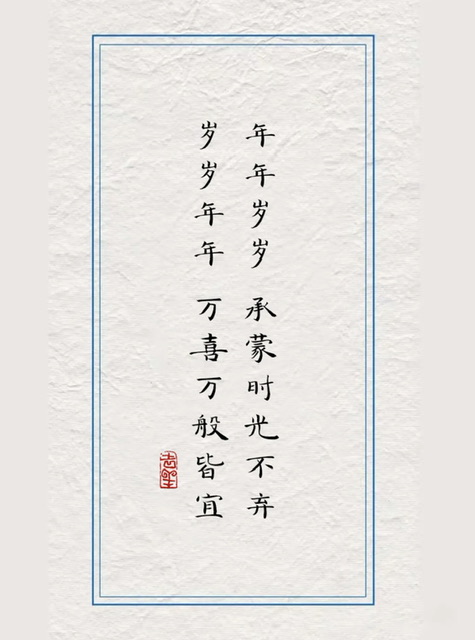 年年岁岁 承蒙时光不弃
岁岁年年 万喜万般皆宜